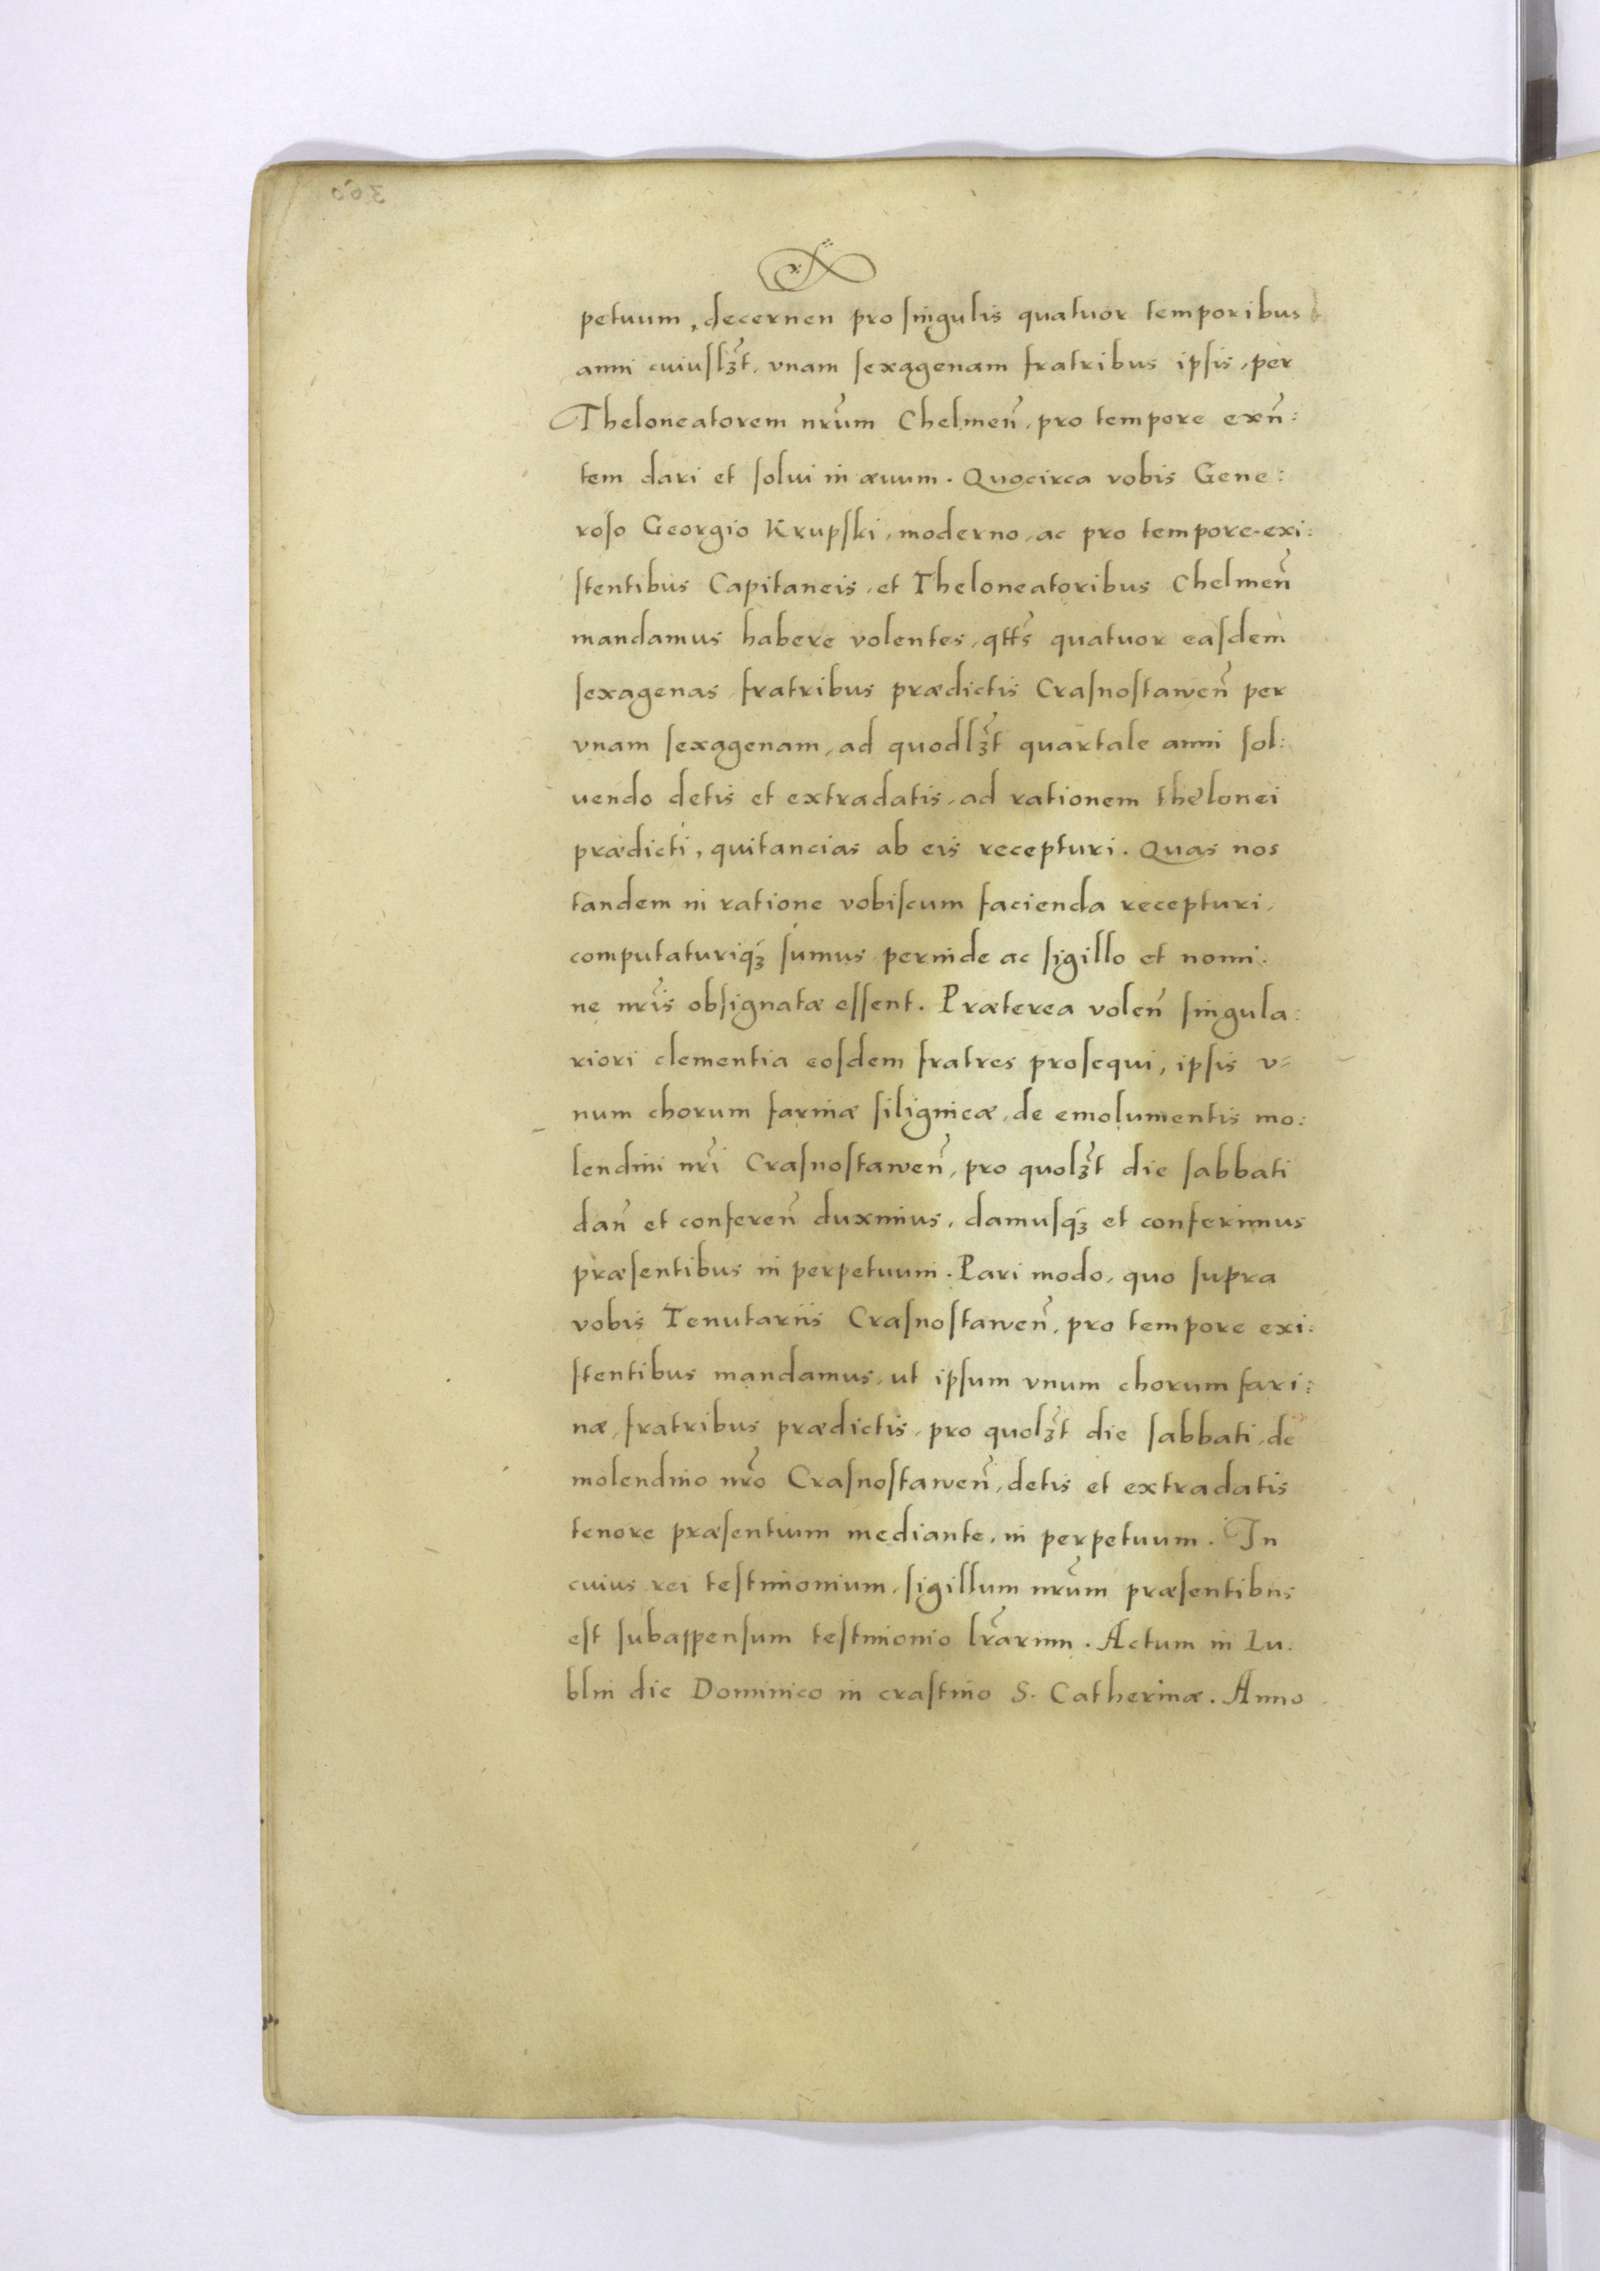 petuum, decernen pro singulis quatuor temporibus
anni cuiuslꝫt, vnam sexagenam fratribus ipsis, per
Theloneatorem nr̃um Chelmen̄, pro tempore exn̄:
tem dari et solui in æuum. Quocirca vobis Gene:
roso Georgio Krupski, moderno, ac pro tempore exi:
stentibus Capitaneis, et Theloneatoribus Chelmen̄
mandamus habere volentes, qtt̃s quatuor easdem
sexagenas, fratribus prædictis Crasnostawen̄ per
vnam sexagenam, ad quodlꝫt quartale anni sol:
uendo detis et extradatis, ad rationem thelonei
prædicti, quitancias ab eis recepturi. Quas nos
tandem in ratione vobiscum facienda recepturi,
computaturiqꝫ sumus perinde ac sigillo et nomi:
ne nr̃is obsignatæ essent. Præterea volen̄ singula:
riori clementia eosdem fratres prosequi, ipsis v=
num chorum farinæ siligineæ, de emolumentis mo:
lendini nr̃i Crasnostawen̄, pro quolꝫt die sabbati
dan̄ et conferen̄ duximus, damusqꝫ et conferimus
præsentibus in perpetuum. Pari modo, quo supra
vobis Tenutariis Crasnostawen̄, pro tempore exi:
stentibus mandamus, ut ipsum vnum chorum fari:
næ, fratribus prædictis, pro quolꝫt die sabbati, de
molendino nr̃o Crasnostawen̄, detis et extradatis
tenore præsentium mediante, in perpetuum. In
cuius rei testimonium, sigillum nr̃um præsentibus
est subappensum testimonio lr̃arum. Actum in Lu:
blin die Dominico in crastino S. Catherinæ. Anno